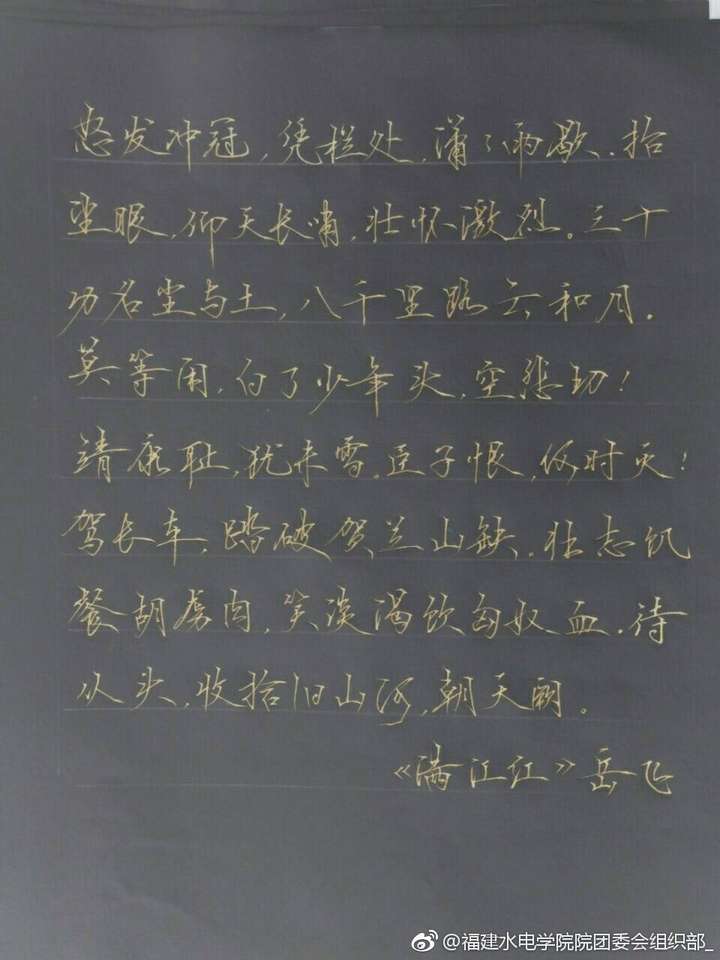 怒发冲冠,凭栏处,潇々雨歇.抬
望眼,仰天长啸,壮怀激烈。三十
功名尘与土,八千里路云和月.
莫等闲,白了少年头,空悲切!
靖康耻,犹未雪。臣子恨,何时灭!
驾长车,踏破贺兰山缺.壮志饥
餐胡虏肉,笑淡渴饮匈奴血.待
从头,收拾旧山河,朝天阙。
《满江红》岳飞
@福建水电学院院团委会组织部_